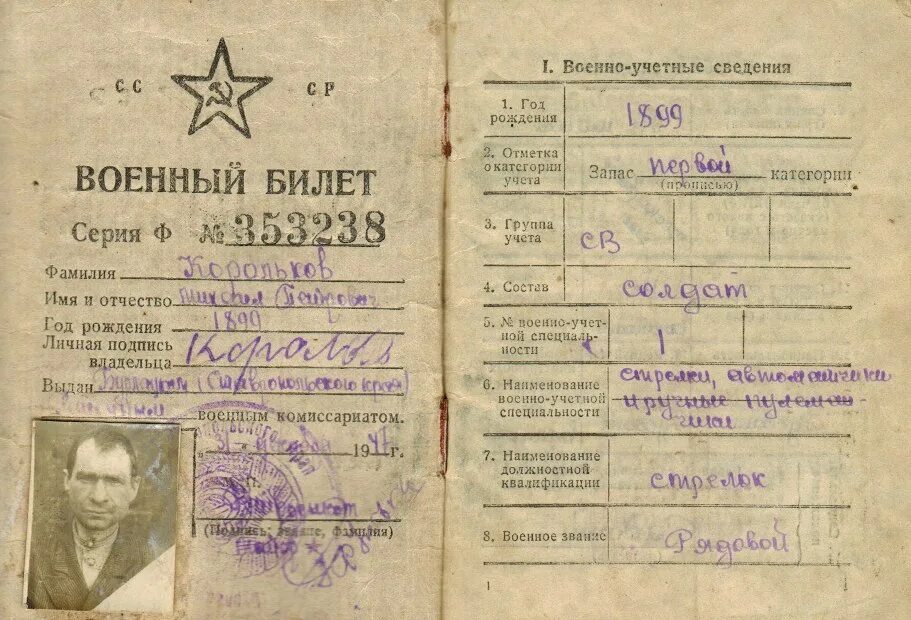 СС СР
ВОЕННЫЙ БИЛЕТ
Серия Ф № 353238
Фамилия Корольков
Имя и отчество Михаил Петрович
Год рождения 1899
Личная подпись
владельца
Выдан (Ставропольского края)
военным комиссариатом.
31 декабря 1947 г.
М. П.
(Подпись, звание, фамилия)
I. Военно-учетные сведения
1. Год
рождения 1899
2. Отметка
о категории
учета Запас первой категории
(прописью)
3. Группа
учета СВ
4. Состав солдат
5. № военно-учет-
ной специаль-
ности 1
6. Наименование
военно-учетной
специальности стрелки, автоматчики
и ручные пулемет-
чики
7. Наименование
должностной
квалификации стрелок
8. Военное звание Рядовой
1